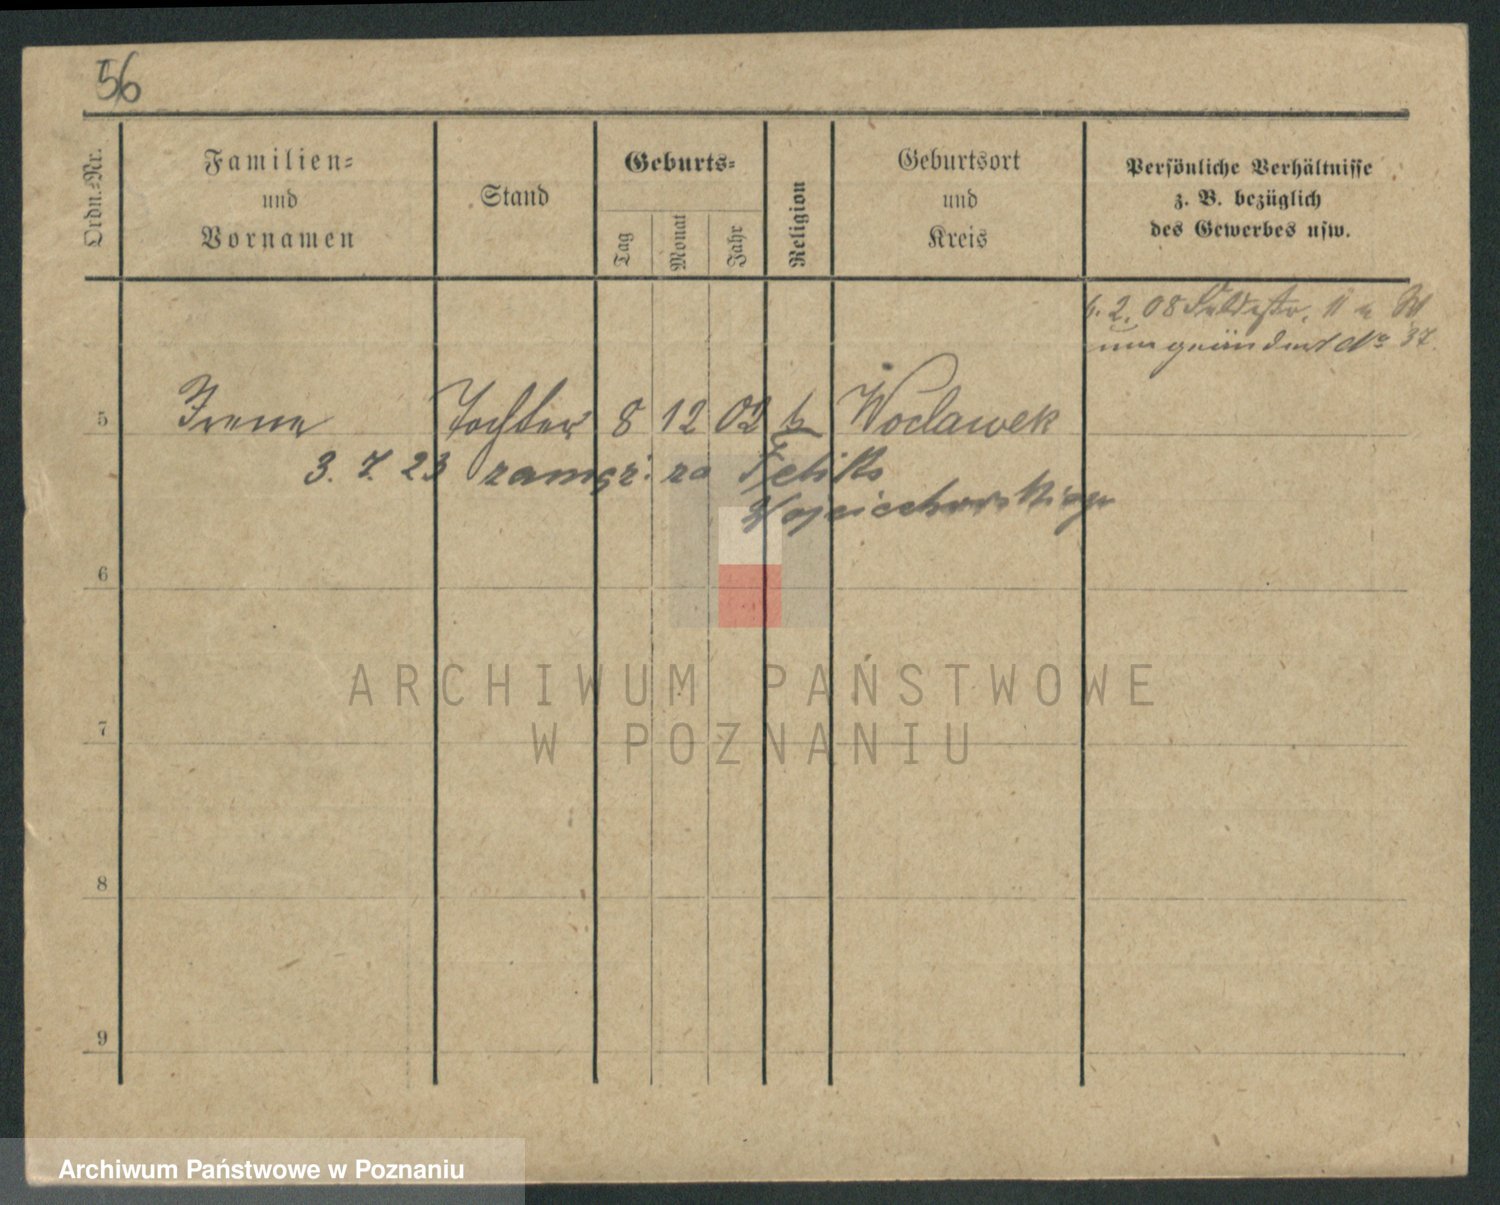 56
Ordn.-Nr.
Familien-
und
Vornamen
Stand
Geburts-
Tag
Monat
Jahr
Religion
Geburtsort
und
Kreis
Persönliche Verhältnisse
z. B. bezüglich
des Gewerbes usw.
2. 08 11
No 37
5 Irene Tochter 8 12 02 Woclawek
3. 7. 23 zamęż. za Feliks
Wojciechowskiego
6
ARCHIWUM PAŃSTWOWE
7
W POZNANIU
8
9
Archiwum Państwowe w Poznaniu